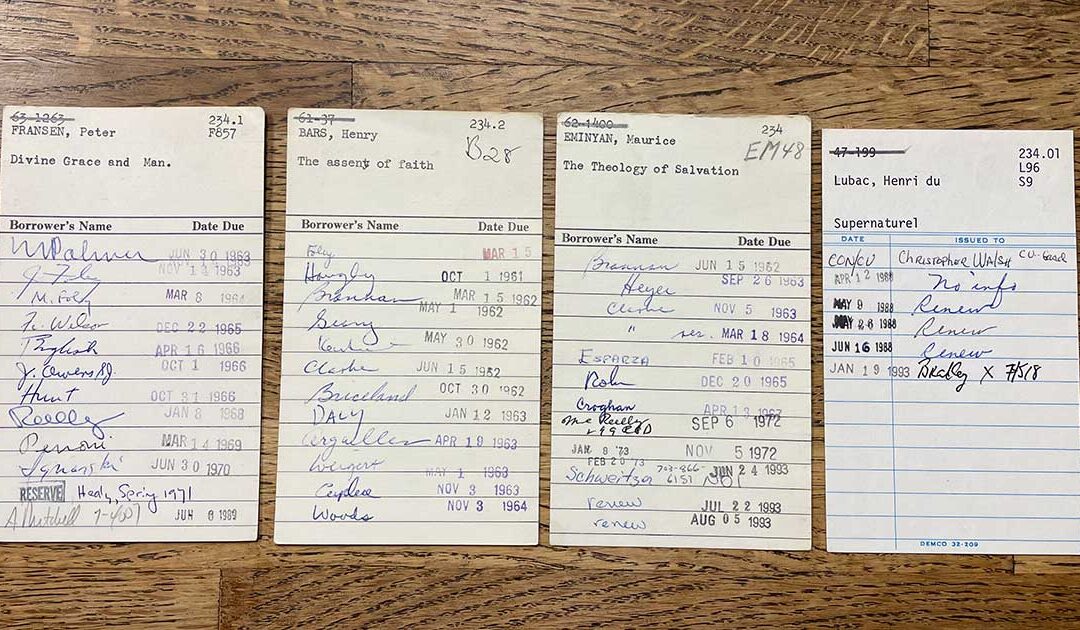 63-1263
FRANSEN, Peter 234.1
F857
Divine Grace and Man.
Borrower's Name Date Due
JUN 30 1963
NOV 14 1963
M. Foley MAR 8 1964
Fr. Wilson DEC 22 1965
English APR 16 1966
J. Owens SJ. OCT 1 1966
Hunt OCT 31 1966
Reilly JAN 8 1968
MAR 14 1969
JUN 30 1970
RESERVE Healy, Spring 1971
A Mitchell 7-4007 JUN 8 1989
61-37
BARS, Henry 234.2
B28
The assent of faith
Borrower's Name Date Due
MAR 15
OCT 1 1961
Brannan MAR 15 1962
MAY 1 1962
Geary
MAY 30 1962
Clarke JUN 15 1962
Briceland OCT 30 1962
DALY JAN 12 1963
APR 19 1963
Weigert MAY 1 1963
NOV 3 1963
Woods NOV 3 1964
62-1400
EMINYAN, Maurice 234
EM48
The Theology of Salvation
Borrower's Name Date Due
Brannan JUN 15 1962
Heyer SEP 26 1963
Clarke NOV 5 1963
" res. MAR 18 1964
ESPARZA FEB 10 1965
DEC 20 1965
Croghan APR 13 1967
Mc Reilly SEP 6 1972
JAN 9 '73 NOV 5 1972
FEB 20 '73
Schwertzer 703-866-6151 JUN 24 1993
renew JUL 22 1993
renew AUG 05 1993
47-199
Lubac, Henri du 234.01
L96
S9
Supernaturel
DATE ISSUED TO
CON/CU CHRISTOPHER WALSH CU-Grad
APR 12 1988 No info
MAY 9 1988 Renew
MAY 26 1988 Renew
JUN 16 1988 Renew
JAN 19 1993 Bradley X 7/518
DEMCO 32-209